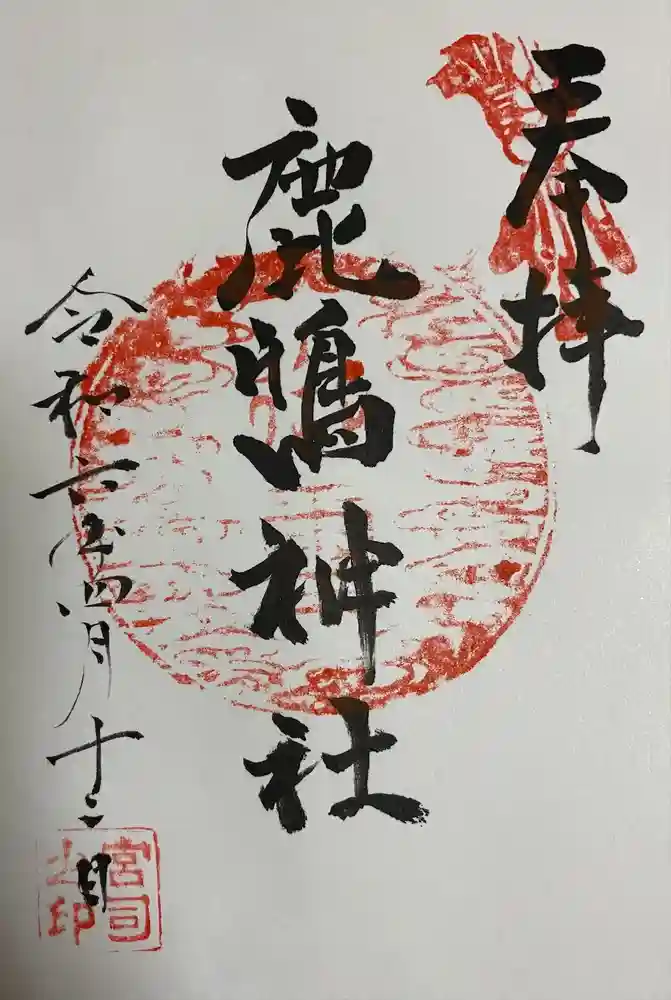 奉拝
鹿嶋神社
令和六年四月十二日
宮司之印